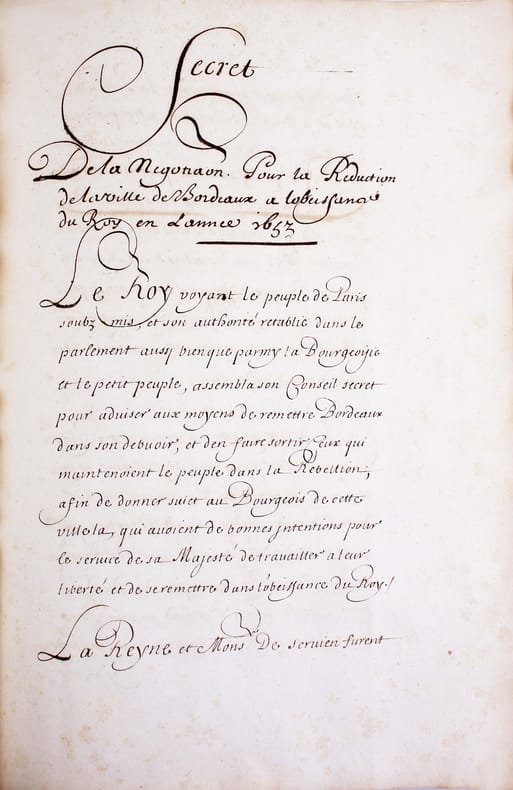 Secret
De la Negotiaõn. Pour la Reduction
de la ville de Bordeaux a lobeissance
du Roy en Lannee 1653
Le Roy voyant le peuple de Paris
soubz mis, et son authorité retablie dans le
parlement aussy bien que parmy la Bourgeoisie
et le petit peuple, assembla son Conseil secret
pour adviser aux moyens de remettre Bordeaux
dans son debuoir, et den faire sortir Ceux qui
maintenoient le peuple dans la Rebellion,
afin de donner suiet au Bourgeois de cette
ville la, qui avoient de bonnes jntentions pour
le service de sa Majesté de travailler a leur
liberté et de se remettre dans lobeissance du Roy./
La Reyne et Mons De servien furent